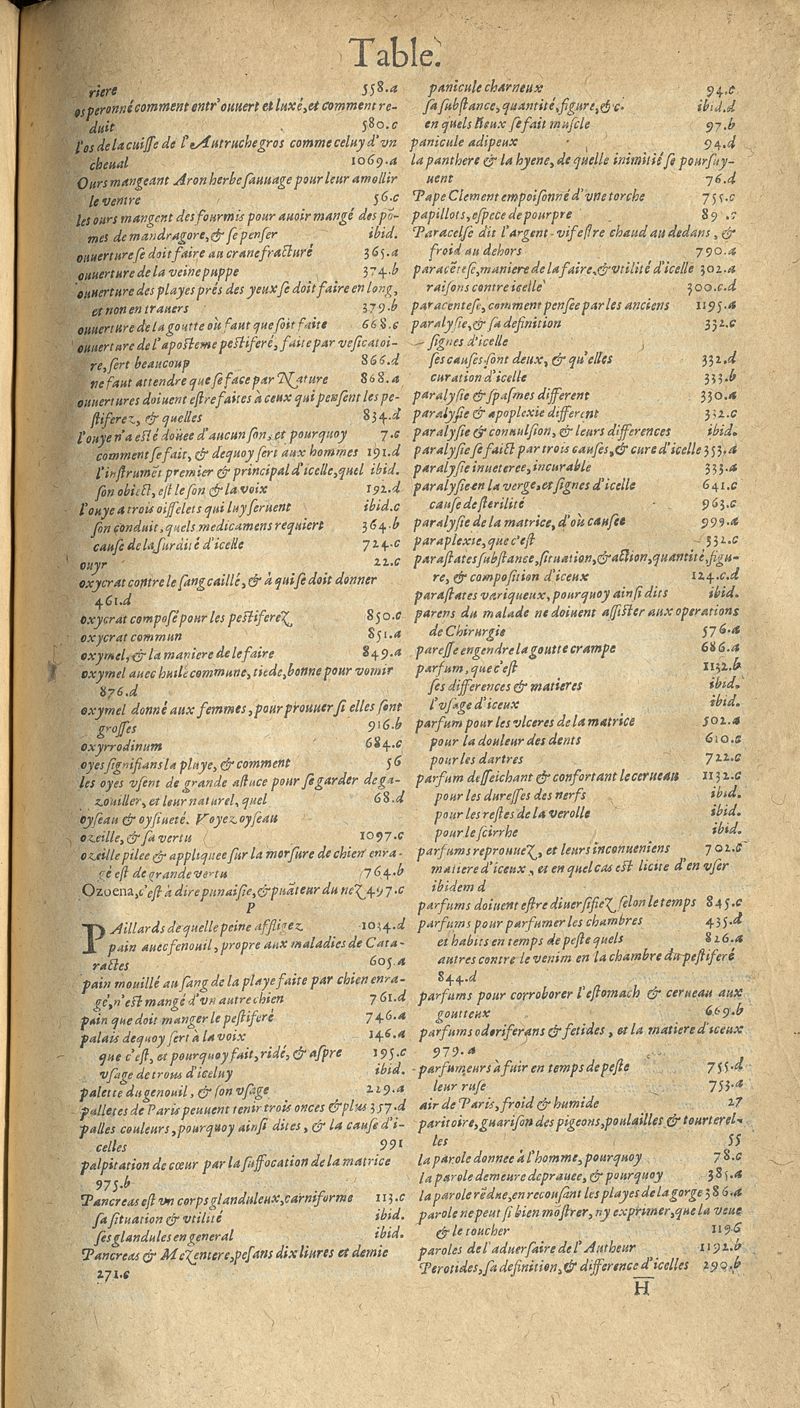 Table.
riere 558.a
os peronné comment entr'ouuert et luxé, et comment re-
duit 580.c
l'os de la cuisse de l'Autruche gros comme celuy d'vn
cheual 1069.a
Ours mangeant Aron herbe sauuage pour leur amollir
le ventre 56.c
les ours mangent des fourmis pour auoir mangé des põ-
mes de mandragore, & se penser ibid.
ouuerture se doit faire au crane fracturé 365.a
ouuerture de la veine puppe 374.b
ouuerture des playes prés des yeux se doit faire en long,
et non en trauers 379.b
ouuerture de la goutte où faut que soit faite 668.c
ouuerture de l'aposteme pestiferé, faite par vesicatoi-
re, sert beaucoup 866.d
ne faut attendre que se face par Nature 868.a
ouuertures doiuent estre faites à ceux qui pensent les pe-
stiferez, & quelles 834.d
l'ouye n'a esté donee d'aucun son, et pourquoy 7.c
comment se fait, & dequoy sert aux hommes 191.d
l'instrumẽt premier & principal d'icelle, quel ibid.
son obiect, est le son & la voix 192.d
l'ouye a trois oisselets qui luy seruent ibid.c
son conduit, quels medicamens requiert 364.b
cause de la surdité d'icelle 724.c
ouyr 22.c
oxycrat contre le sang caillé, & à qui se doit donner
461.d
oxycrat composé pour les pestiferez 850.c
oxycrat commun 851.a
oxymel, & la maniere de le faire 849.a
oxymel auec huile commune, tiede, bonne pour vomir
876.d
oxymel donné aux femmes, pour prouuer si elles sont
grosses 916.b
oxyrrodinum 684.c
oyes signifians la playe, & comment 56
les oyes vsent de grande astuce pour se garder de ga-
zouiller, et leur naturel, quel 68.d
oyseau & oysiueté. Voyez oyseau
ozeille, & sa vertu 1097.c
ozeille pilee & appliquee sur la morsure de chien enra-
gé est de grande vertu 764.b
Ozoena, c'est à dire punaisie, & puãteur du nez 497.c
P
PAillards de quelle peine affligez 1034.d
pain auec fenouil, propre aux maladies de Cata-
ractes 605.a
pain mouillé au sang de la playe faite par chien enra-
gé, n'est mangé d'vn autre chien 761.d
pain que doit manger le pestiferé 746.a
palais dequoy sert à la voix 146.a
que c'est, et pourquoy fait, ridé, & aspre 195.c
vsage de trous d'iceluy ibid.
palette du genouil, & son vsage 229.a
palletes de Paris peuuent tenir trois onces & plus 357.d
palles couleurs, pourquoy ainsi dites, & la cause d'i-
celles 991
palpitation de cœur par la suffocation de la matrice
975.b
Pancreas est vn corps glanduleux, carniforme 113.c
sa situation & vtilité ibid.
ses glandules en general ibid.
Pancreas & Mezentere, pesans dix liures et demie
271.c
panicule charneux 94.c
sa substance, quantité, figure, &c. ibid.d
en quels lieux se fait muscle 97.b
panicule adipeux 94.d
la panthere & la hyene, de quelle inimitié se poursuy-
uent 76.d
Pape Clement empoisonné d'vne torche 755.c
papillots, espece de pourpre 89 .c
Paracelse dit l'argent-vif estre chaud au dedans, &
froid au dehors 790.a
paracẽtese, maniere de la faire, & vtilité d'icelle 302.a
raisons contre icelle 300.c.d
paracentese, comment pensee par les anciens 1195.a
paralysie, & sa definition 332.c
signes d'icelle
ses causes sont deux, & qu'elles 332.d
curation d'icelle 333.b
paralysie & spasmes different 330.a
paralysie & apoplexie different 332.c
paralysie & conuulsion, & leurs differences ibid.
paralysie se faict par trois causes, & cure d'icelle 353.a
paralysie inueteree, incurable 333.a
paralysie en la verge, et signes d'icelle 641.c
cause de sterilité 963.c
paralysie de la matrice, d'où causee 999.a
paraplexie, que c'est 332.c
parastates substance, situation, & action, quantité, figu-
re, & composition d'iceux 124.c.d
parastates variqueux, pourquoy ainsi dits ibid.
parens du malade ne doiuent assister aux operations
de Chirurgie 576.a
paresse engendre la goutte crampe 686.a
parfum, que c'est 1132.b
ses differences & matieres ibid.
l'vsage d'iceux ibid.
parfum pour les vlceres de la matrice 502.a
pour la douleur des dents 610.c
pour les dartres 722.c
parfum desseichant & confortant le cerueau 1132.c
pour les duresses des nerfs ibid.
pour les restes de la verolle ibid.
pour le scirrhe ibid.
parfums reprouuez, et leurs inconueniens 702.c
matiere d'iceux, et en quel cas est licite d'en vser
ibidem d
parfums doiuent estre diuersifiez selon le temps 845.c
parfums pour parfumer les chambres 435.d
et habits en temps de peste quels 826.a
autres contre le venim en la chambre du pestiferé
844.d
parfums pour corroborer l'estomach & cerueau aux
goutteux 669.b
parfums odoriferans & fetides, et la matiere d'iceux
979.a
parfumeurs à fuir en temps de peste 755.d
leur ruse 753.a
air de Paris, froid & humide 27
paritoire, guarison des pigeons, poulailles & tourterel-
les 55
la parole donnee à l'homme, pourquoy 78.c
la parole demeure deprauee, & pourquoy 385.a
la parole rẽdue, en recousant les playes de la gorge 386.a
parole ne peut si bien mõstrer, ny exprimer, que la veue
& le toucher 1196
paroles de l'aduersaire de l'Autheur 1192.b
Perotides, sa definition, & difference d'icelles 290.b
H